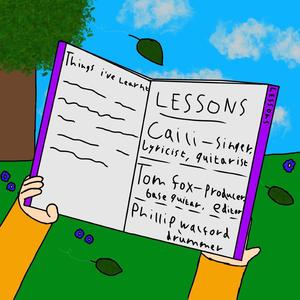 Things i've learnt
LESSONS
Caili - singer,
Lyricist, guitarist
Tom Fox - Producer,
base guitar, editor
Phillip Walford
drummer
LESSONS